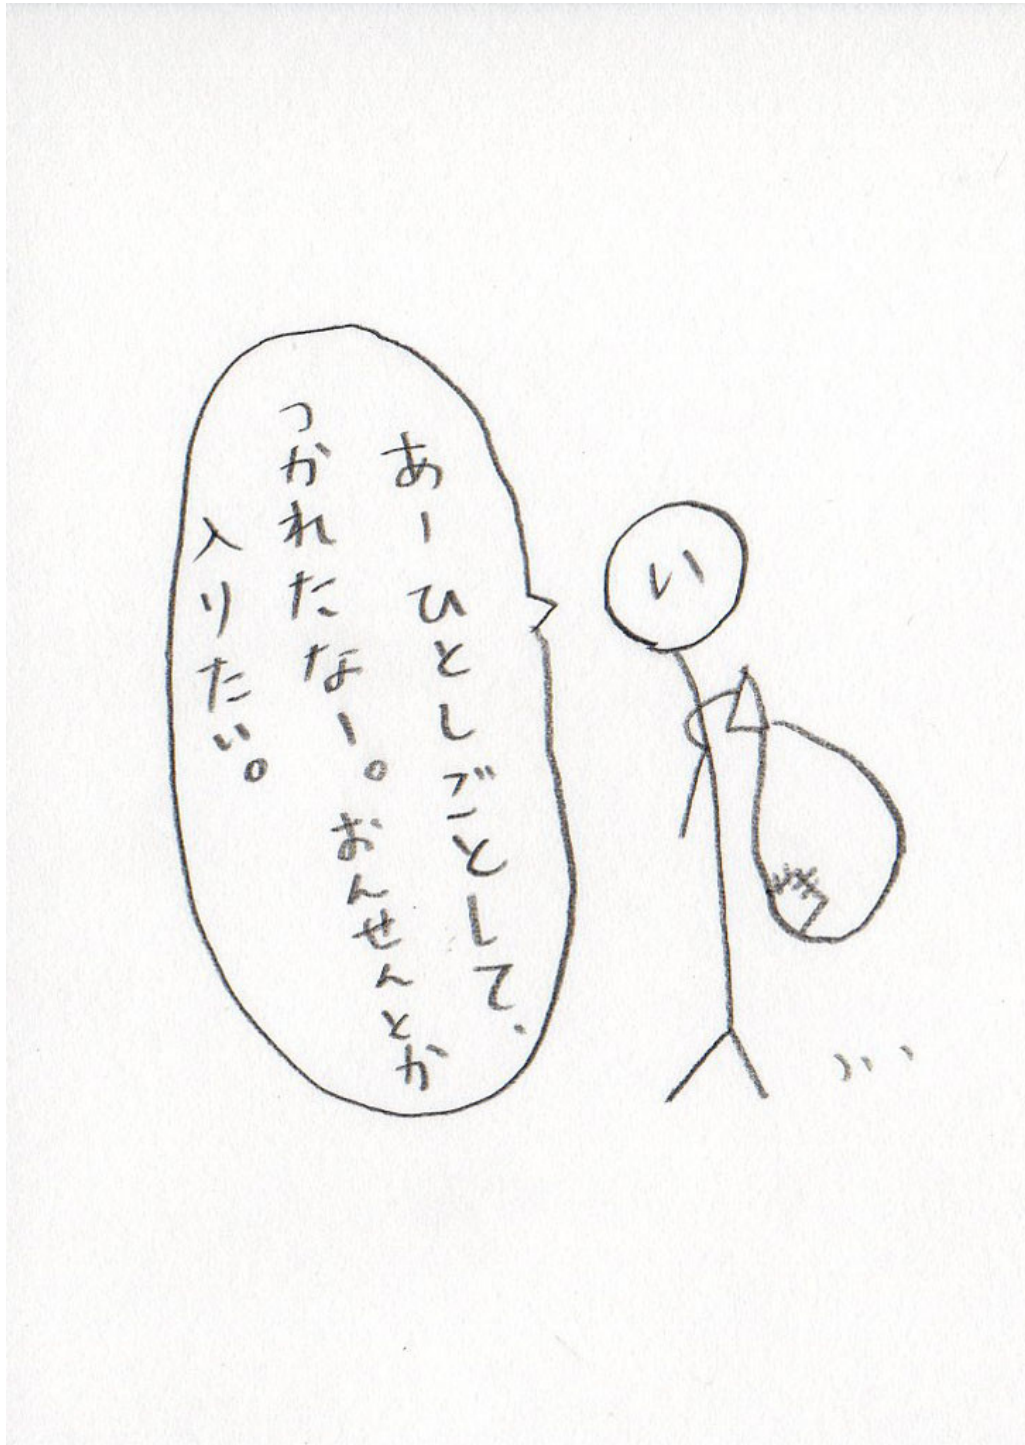 あーひとしごとして、
つかれたなー。おんせんとか
入りたい。
い